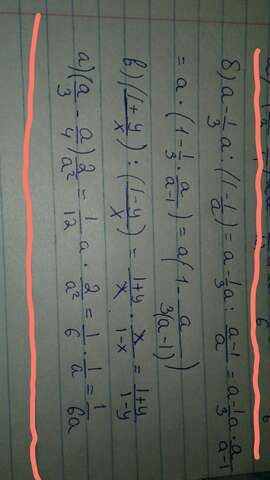 б) a - 1/3 a : (1 - 1/a) = a - 1/3 a : (a-1)/a = a - 1/3 a · a/(a-1)
= a · (1 - 1/3 · a/(a-1)) = a(1 - a/(3(a-1)))
в) ((1+y)/x) : ((1-y)/x) = (1+y)/x · x/(1-x) = (1+y)/(1-y)
а) (a/3 - a/4) 2/a² = 1/12 a · 2/a² = 1/6 · 1/a = 1/6a